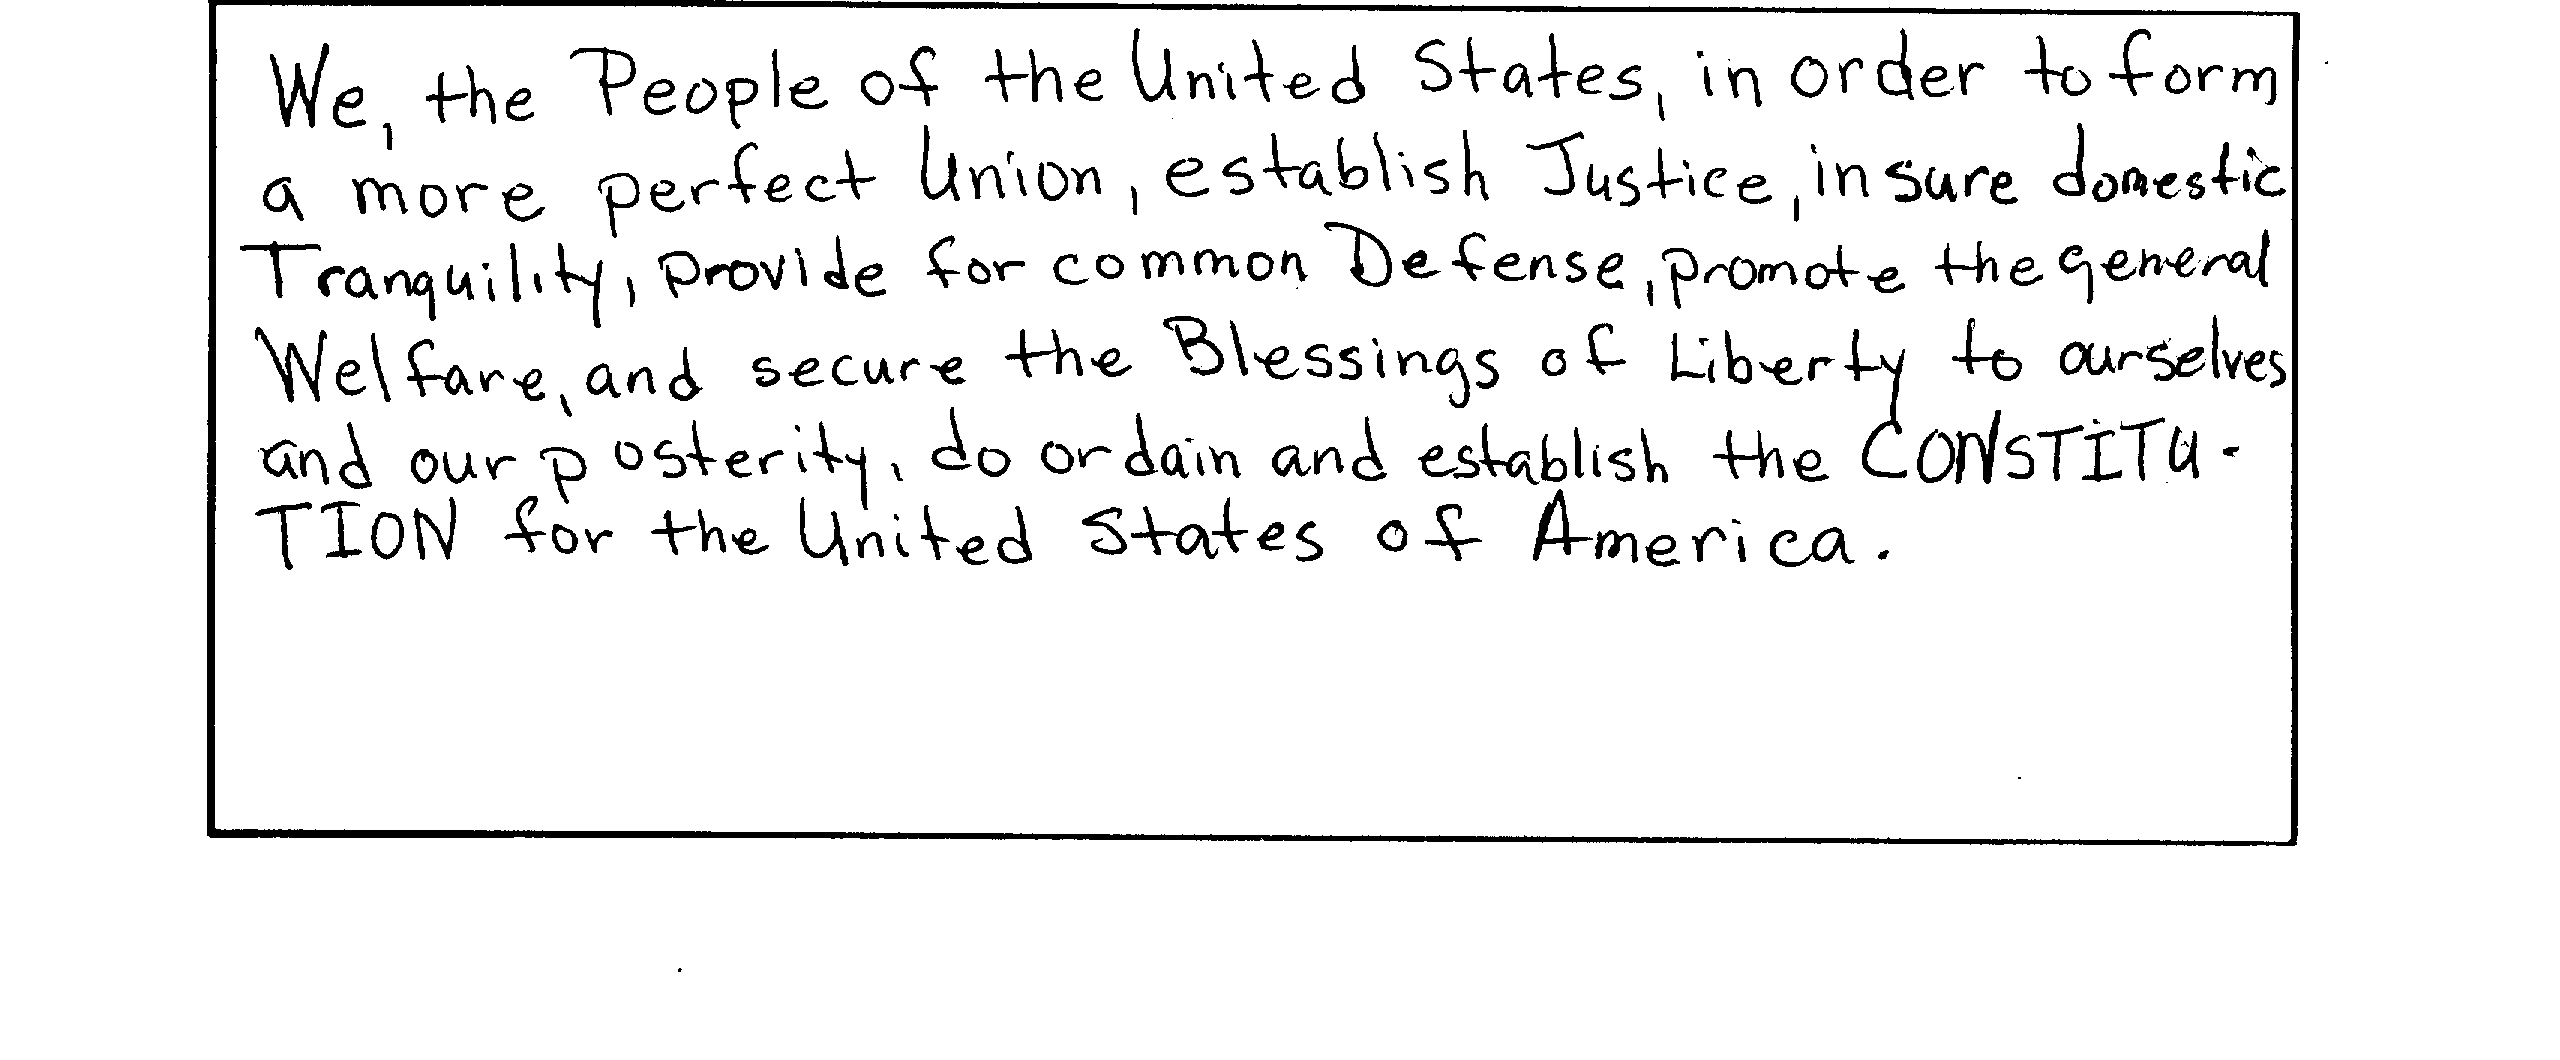 We, the People of the United States, in order to form
a more perfect Union, establish Justice, insure domestic
Tranquility, provide for common Defense, promote the general
Welfare, and secure the Blessings of Liberty to ourselves
and our posterity, do ordain and establish the CONSTITU-
TION for the United States of America.